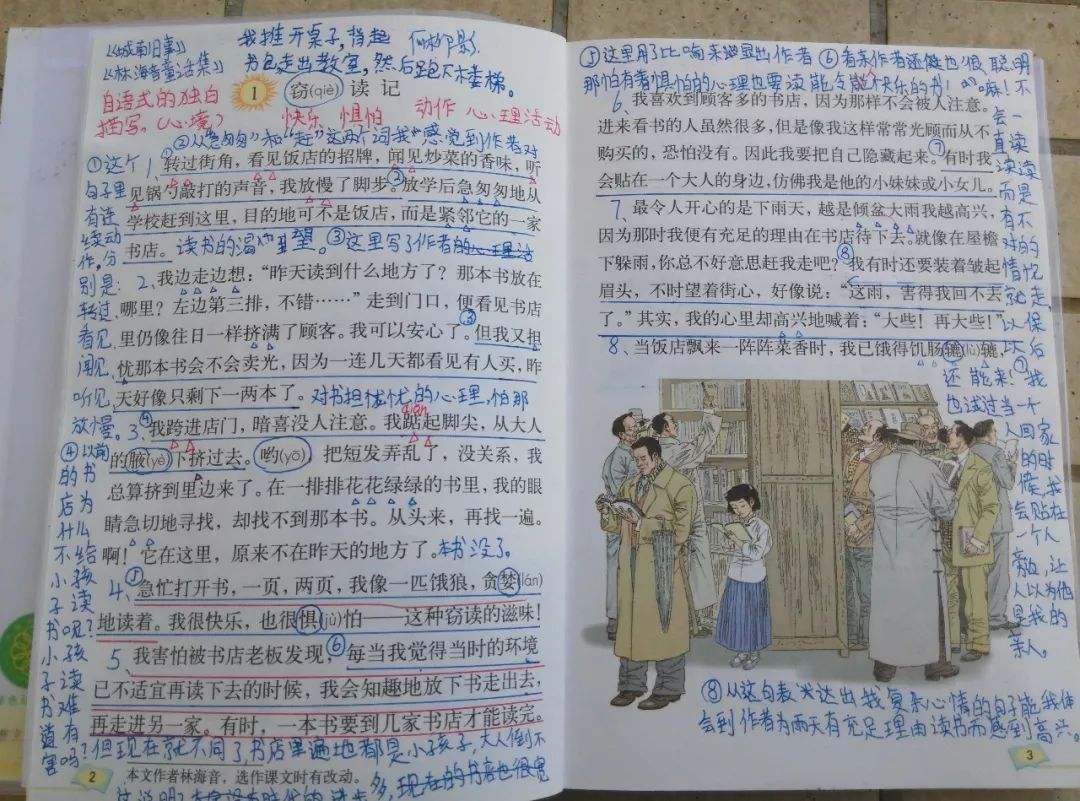 《城南旧事》
《林海音童话集》
我推开桌子，背起
书包走出教室，然后踏下木楼梯。
自语式的独白
描写。（心境）
快乐 惧怕 动作 心理活动
1 窃(qiè)读记
②从"急匆匆"和"赶"这两个词我感觉到作者对
读书的渴望。
①这个
句子里
有连
续动
作，分
别是：
转过、
看见、
闻见、
听见、
放慢。
1、转过街角，看见饭店的招牌，闻见炒菜的香味，听
见锅勺敲打的声音，我放慢了脚步。放学后急匆匆地从
学校赶到这里，目的地可不是饭店，而是紧邻它的一家
书店。
③这里写了作者
2、我边走边想："昨天读到什么地方了？那本书放在
哪里？左边第三排，不错……"走到门口，便看见书店
里仍像往日一样挤满了顾客。我可以安心了。但我又担
忧那本书会不会卖光，因为一连几天都看见有人买，昨
天好像只剩下一两本了。
对书担忧忧的心理，怕那
本书没了。
3、我跨进店门，暗喜没人注意。我踮起脚尖，从大人
diǎn
的腋(yè)下挤过去。哟(yō)，把短发弄乱了，没关系，我
总算挤到里边来了。在一排排花花绿绿的书里，我的眼
睛急切地寻找，却找不到那本书。从头来，再找一遍。
啊！它在这里，原来不在昨天的地方了。
④以前
的书
店为
什么
不给
小孩
子读
书呢？
小孩
子读
书难
道有
害吗？
但现在就不同了，书店里遍地都是小孩子，大人倒不
多，现在的书店也很宽
4、急忙打开书，一页，两页，我像一匹饿狼，贪婪(lán)
地读着。我很快乐，也很惧(jù)怕——这种窃读的滋味！
5、我害怕被书店老板发现，每当我觉得当时的环境
已不适宜再读下去的时候，我会知趣地放下书走出去，
再走进另一家。有时，一本书要到几家书店才能读完。
本文作者林海音，选作课文时有改动。
2
⑤这里用了比喻来
那怕有着惧怕的心理也要读
⑥看来作者还挺也很聪明
嘛！不
会一
直读
读读
而是
有不
对的
情况
就走
以保
以后
还能来！
6、我喜欢到顾客多的书店，因为那样不会被人注意。
进来看书的人虽然很多，但是像我这样常常光顾而从不
购买的，恐怕没有。因此我要把自己隐藏起来。有时我
会贴在一个大人的身边，仿佛我是他的小妹妹或小女儿。
7、最令人开心的是下雨天，越是倾盆大雨我越高兴，
因为那时我便有充足的理由在书店待下去。就像在屋檐
下躲雨，你总不好意思赶我走吧？我有时还要装着皱起
眉头，不时望着街心，好像说："这雨，害得我回不去
了。"其实，我的心里却高兴地喊着："大些！再大些！"
8、当饭店飘来一阵阵菜香时，我已饿得饥肠辘(lù)辘，
⑦我
也试过当一个
人回家
的时
候，我
会贴在
一个人
旁边，让
人以为他
是我的
亲人。
⑧从这句表达出我复杂心情的句子能我体
会到作者为雨天有充足理由读书而感到高兴。
3